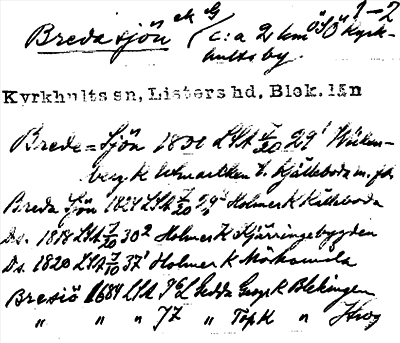 Breda sjön ek G 1-2
c:a 2 km ö SÖ Kyrk-
hults by
Kyrkhults sn, Listers hd. Blek. län
Brede-Sjön 1801 LSA 7/20 29¹ Wicken-
berg K Utmarken t. Kjälleboda m. fl.
Breda Sjön 1824 LSA 7/20 29² Holmer K Källeboda
Ds. 1818 LSA 7/10 30² Holmer K Kjärringebygden
Ds. 1820 LSA 7/10 37¹ Holmer K Mörkamåla
Bresiö 1684 LSA Gedda Geogr K Blekingen
" " " 77 " Top K " Krog